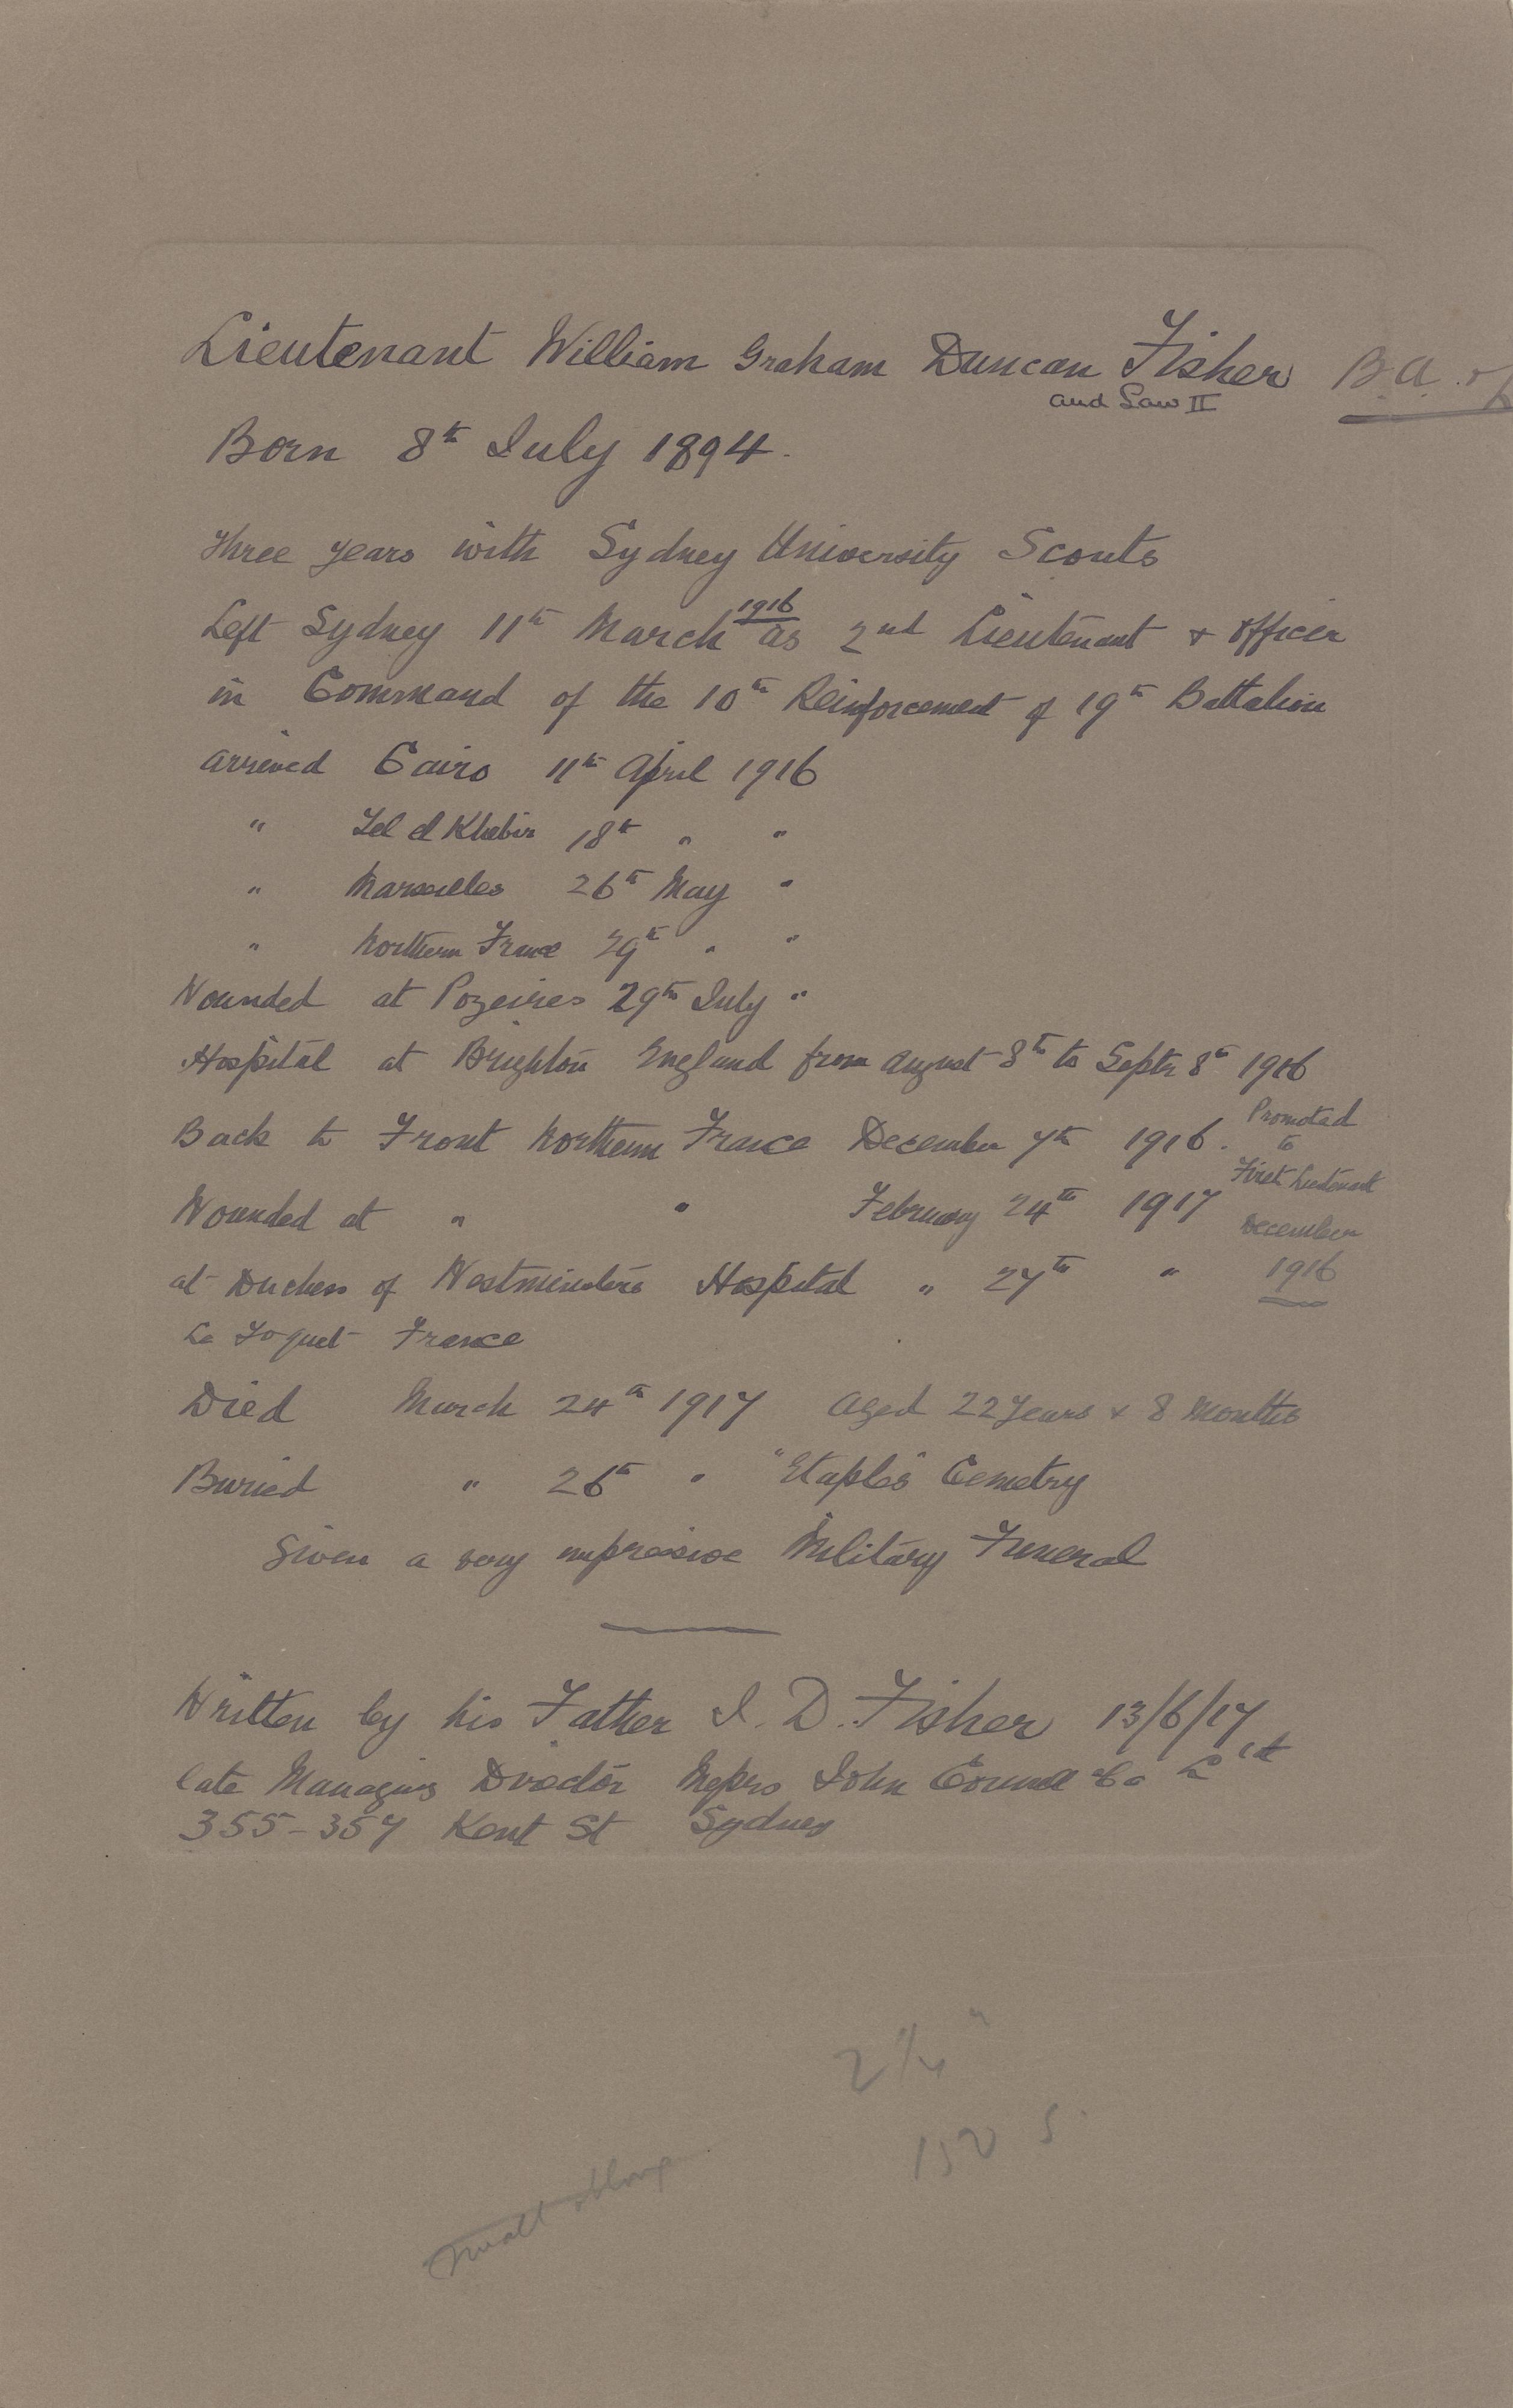 Lieutenant William Graham Duncan Fisher B.A. of
and Law II
Born 8th July 1894.
Three years with Sydney University Scouts
Left Sydney 11th March 1916 as 2nd Lieutenant & Officer
in Command of the 10th Reinforcement of 19th Battalion
arrived Cairo 11th April 1916
" Tel el Khebir 18th " "
" Marseilles 26th May "
" Northern France 29th " "
Wounded at Pozeires 29th July "
Hospital at Brighton England from August 8th to Septr 8th 1916
Back to Front Northern France December 7th 1916.
Promoted
to
First Lieutenant
December
1916
Wounded at " " February 24th 1917
at Duchess of Westminsters Hospital " 27th "
La Toquet France
Died March 24th 1917 aged 22 Years & 8 Months
Buried " 26th " "Etaples" Cemetry
Given a very impressive Military Funeral
Written by his Father J. D. Fisher 13/6/17
late Managing Director Messrs John Connell & Co Ltd
355-357 Kent St Sydney
2 1/4 "
150 S.
small oblong